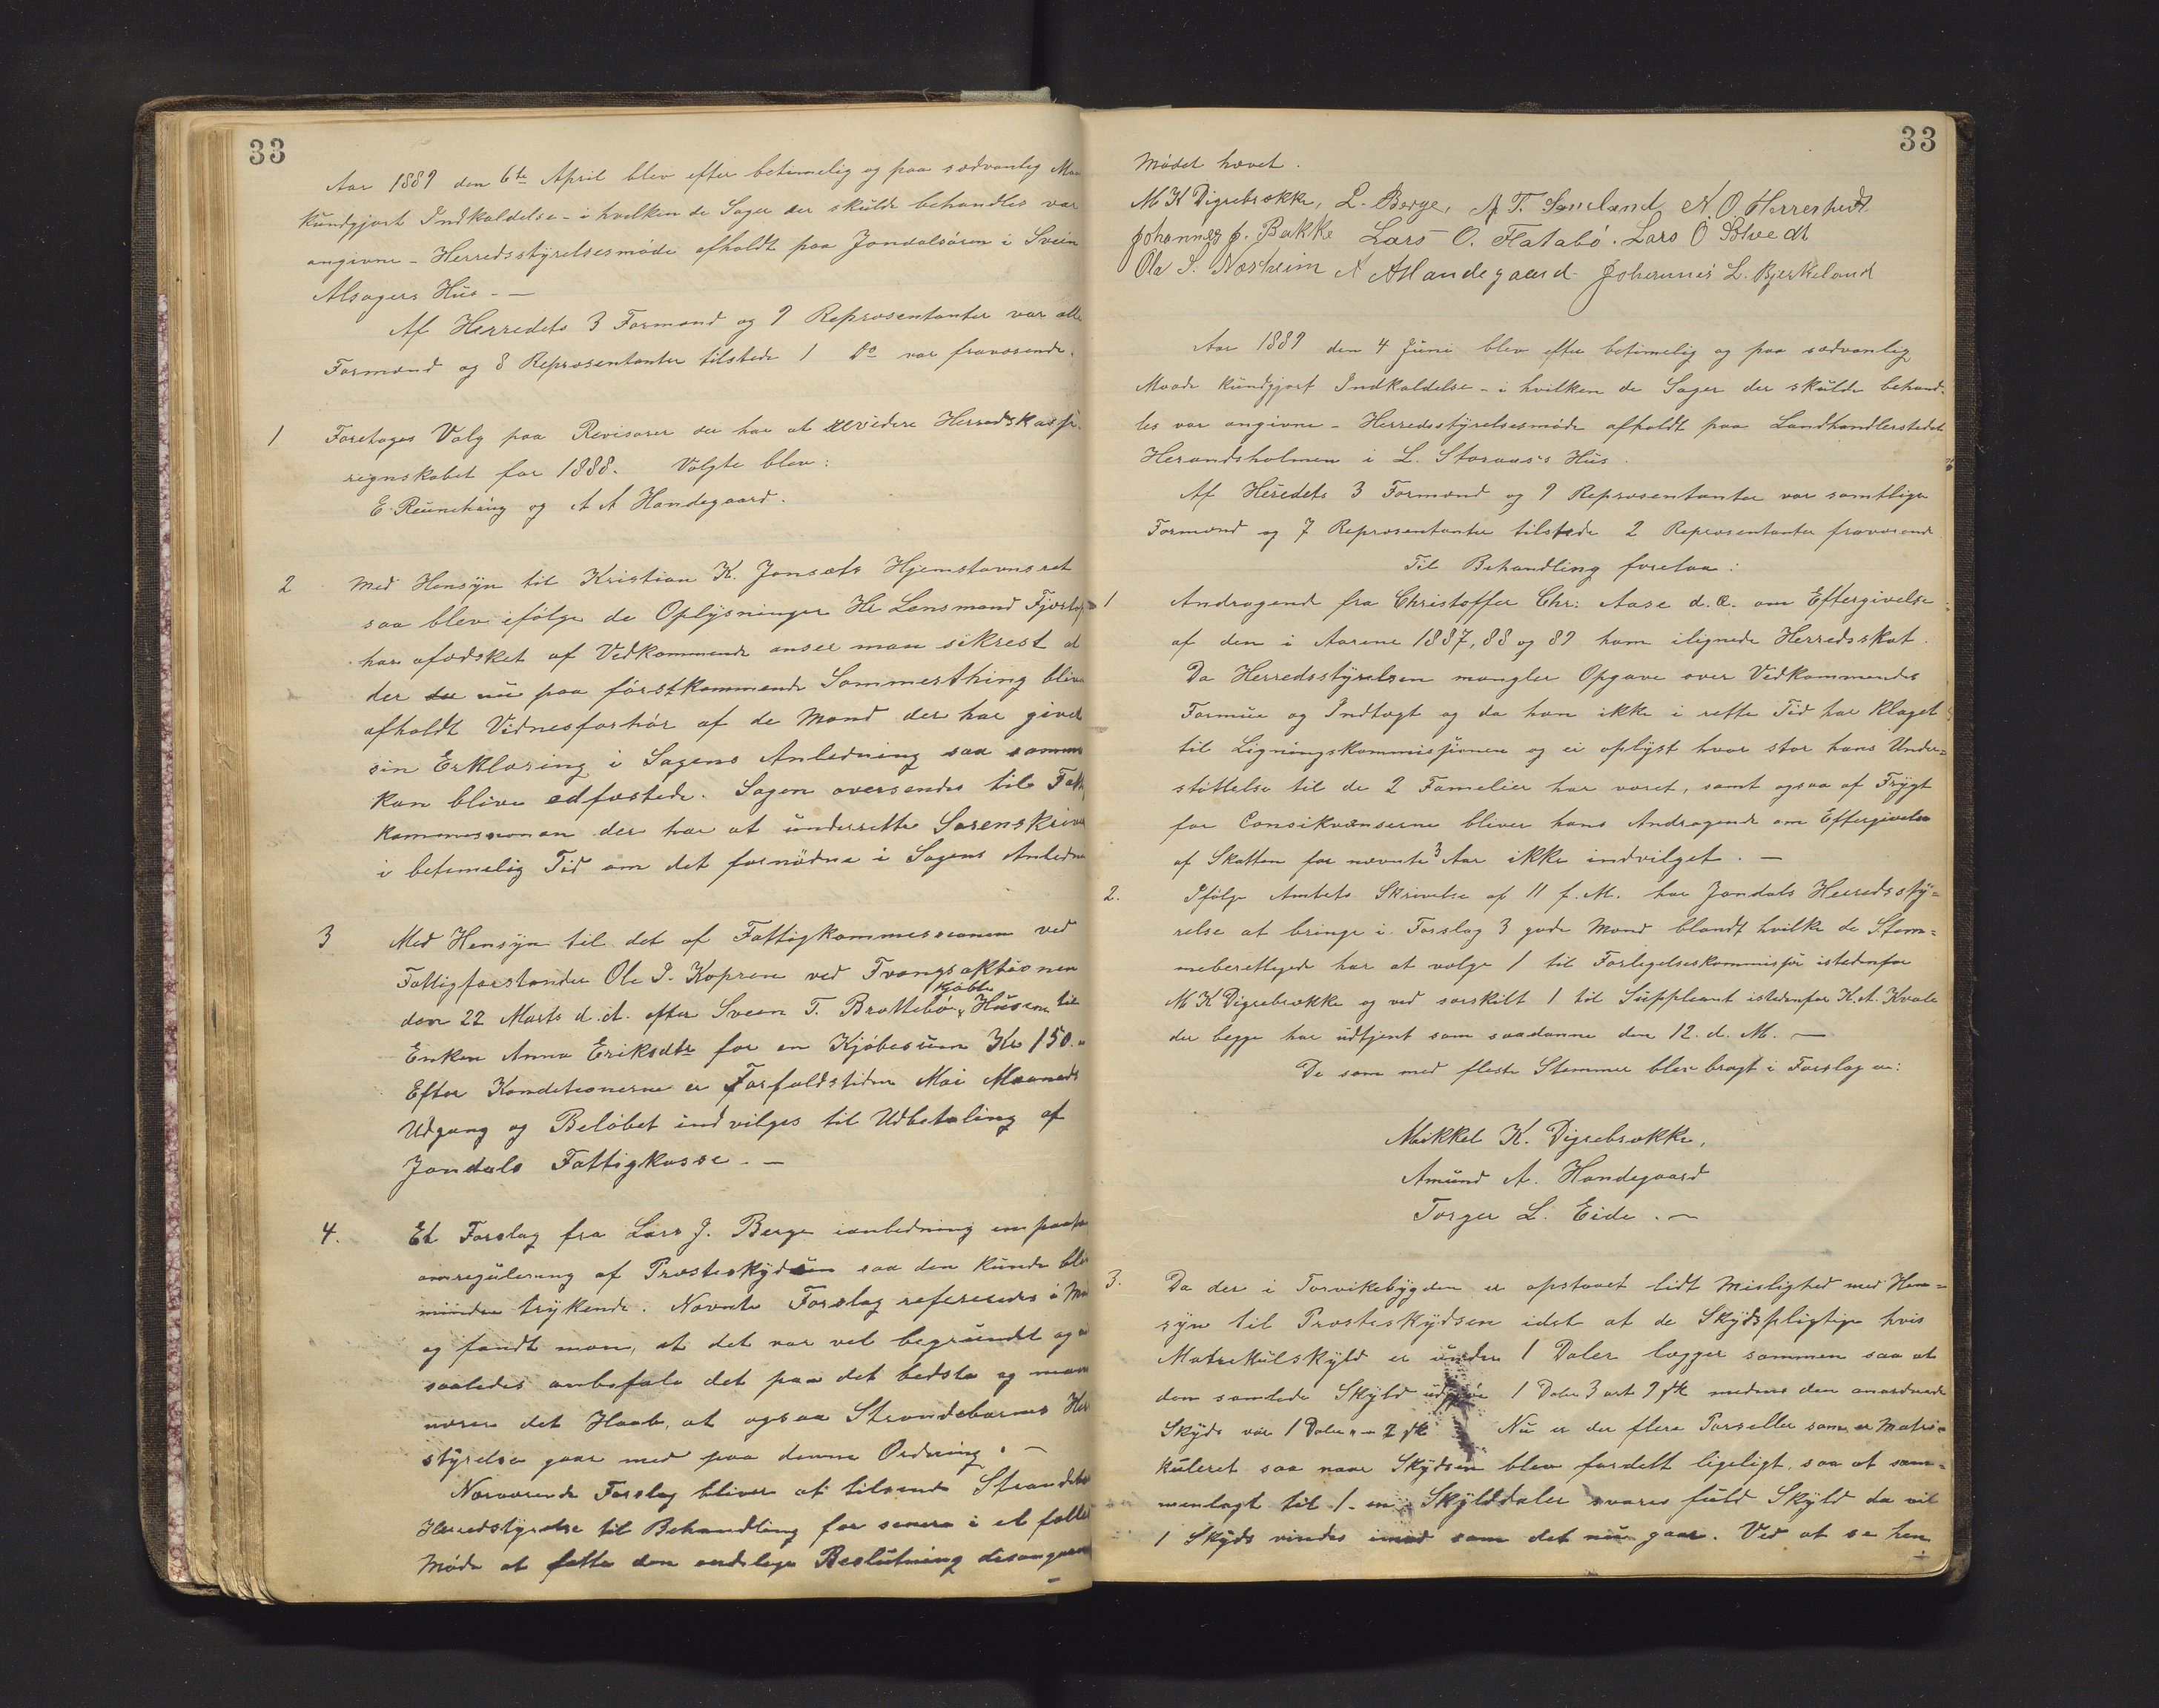 33
Aar 1889 den 6te April blev efter betimelig og paa sædvanlig Maa
kundgjort Indkaldelse - i hvilken de Sager der skulde behandles var
angivne - Herredsstyrelsesmøde afholdt paa Jondalsøren i Svein
Alsagers Hus. -
Af Herredets 3 Formænd og 9 Repræsentanter var alle
Formænd og 8 Repræsentanter tilstede 1 Do var fraværende.
1 Foretoges Valg paa Revisorer der har at revidere Herredskasse
regnskabet for 1888. Valgte blev:
E. Reunchäng og A A Handegaard.
2 Med Hensyn til Kristian K. Jonsæts Hjemstavnsret
saa blev ifølge de Oplysninger Hr Lensmand
har afæsket af Vedkommende anser man sikrest at
der der nu paa førstkommende Sommerthing bliver
afholdt Vidnesforhør af de Mænd der har givet
sin Erklæring i Sagens Anledning saa samme
kan blive edfæstede. Sagen oversendes til Fatt
kommissionen der har at underrette Sorenskriver
i betimelig Tid om det fornødne i Sagens Anledn
3 Med Hensyn til det af Fattigkommessionen ved
Fattigforstander Ole I. Kopren ved Tvangsauktionen
den 22 Marts d. A. efter Sveen T. Brattebø kjøbte Husene til
Enken Anna Eriksdtr for en Kjøbesum Kr 150.
Efter Konditionerne er Forfaldstiden Mai Maaneds
Udgang og Beløbet indvilges til Udbetaling af
Jondals Fattigkasse. -
4. Et Forslag fra Lars J. Berge ianledning en
omregulering af Præsteskydsen saa den kunde bliv
mindre trykende. Nævnte Forslag refereredes i Mø
og fandt man, at det var vel begrundet og
saaledes anbefale det paa det bedste og man
nærer det Haab, at ogsaa Strandebarms Her
styrelse gaar med paa denne Ordning. -
Nærværende Forslag bliver at tilsende Strandeb
Herredstyrelse til Behandling for senere i et fælles
Møde at fatte den endelige Beslutning desangaaende
-
33
Mødet hævet.
M K Digrebrække, L. Berge, A T. Samland N. O. Herrestvedt
Johannes J. Bakke Lars O. Flatabø. Lars O Solvedt
Ole S. Næsheim A AHandegaard Johannes L. Bjerkeland
Aar 1889 den 4 Juni blev efter betimelig og paa sædvanlig
Maade kundgjort Indkaldelse - i hvilken de Sager der skulde behand-
les var angivne - Herredsstyrelsesmøde afholdt paa Landhandlerstedet
Herandsholmen i L. Storaas's Hus.
Af Heredets 3 Formænd og 9 Repræsentanter var samtlige
Formænd og 7 Repræsentanter tilstede 2 Repræsentanter fraværende
Til Behandling forelaa:
1 Andragende fra Christoffer Chr: Aase d. æ. om Eftergivelse
af den i Aarene 1887, 88 og 89 ham ilignede Herredsskat.
Da Herredsstyrelsen mangler Opgave over Vedkommendes
Formue og Indtægt og da han ikke i rette Tid har klaget
til Ligningskommissjonen og ei oplyst hvor stor hans Under=
støttelse til de 2 Famelier har været, samt ogsaa af Frygt
for Consikvænserne bliver hans Andragende om Eftergivelse
af Skatten for nævnte 3 Aar ikke indvilget. -
2. Ifølge Amtets Skrivelse af 11 f. M. har Jondals Herredssty=
relse at bringe i Forslag 3 gode Mænd blandt hvilke de Stem=
meberettigede har at vælge 1 til Forligelseskommissær istedenfor
M K Digrebrække og ved særskilt 1 til Suppleant istedenfor K. A. Kvale
der begge har udtjent som saadanne den 12. d. M. -
De som med fleste Stemmer blev bragt i Forslag er:
Mikkel K. Digrebrække,
Amund A. Handegaard
Torger L. Eide. -
3. Da der i Torvikebygden er opstaaet lidt Mislighed med Hen=
syn til Præsteskydsen idet at de Skydspligtige hvis
Matrekulskyld er under 1 Daler lægger sammen saa at
den samlede Skyld udgjør 1 Daler 3 ort 9 sk medens den anordnede
Skyds var 1 Daler " - 2 sk Nu er der flere Parseller som er Matri=
kuleret saa naar Skydsen blev fordelt ligeligt, saa at sam=
menlagt til 1 - en Skylddaler svares fuld Skyld da vil
1 Skyds vindes imod som det nu gaar. Ved at se hen